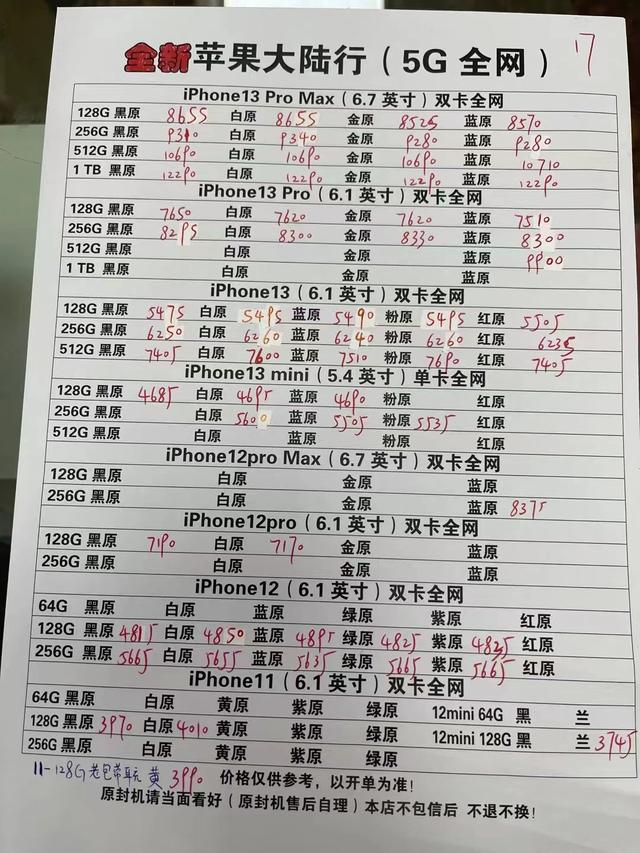 全新苹果大陆行（5G 全网）
17
iPhone13 Pro Max（6.7 英寸）双卡全网
128G 黑原 8655 白原 8655 金原 8525 蓝原 8570
256G 黑原 9310 白原 9340 金原 9280 蓝原 9280
512G 黑原 10690 白原 10690 金原 10690 蓝原 10710
1 TB 黑原 12290 白原 12290 金原 12290 蓝原 12290
iPhone13 Pro（6.1 英寸）双卡全网
128G 黑原 7650 白原 7620 金原 7620 蓝原 7510
256G 黑原 8295 白原 8300 金原 8330 蓝原 8300
512G 黑原 白原 金原 蓝原 9900
1 TB 黑原 白原 金原 蓝原
iPhone13（6.1 英寸）双卡全网
128G 黑原 5475 白原 5495 蓝原 5490 粉原 5495 红原 5505
256G 黑原 6250 白原 6260 蓝原 6240 粉原 6260 红原 6235
512G 黑原 7405 白原 7600 蓝原 7510 粉原 7690 红原 7405
iPhone13 mini（5.4 英寸）单卡全网
128G 黑原 4685 白原 4695 蓝原 4690 粉原 红原
256G 黑原 白原 5600 蓝原 5505 粉原 5535 红原
512G 黑原 白原 蓝原 粉原 红原
iPhone12pro Max（6.7 英寸）双卡全网
128G 黑原 白原 金原 蓝原
256G 黑原 白原 金原 蓝原 8375
iPhone12pro（6.1 英寸）双卡全网
128G 黑原 7190 白原 7170 金原 蓝原
256G 黑原 白原 金原 蓝原
iPhone12（6.1 英寸）双卡全网
64G 黑原 白原 蓝原 绿原 紫原 红原
128G 黑原 4815 白原 4850 蓝原 4895 绿原 4825 紫原 4825 红原
256G 黑原 5665 白原 5655 蓝原 5635 绿原 5665 紫原 5665 红原
iPhone11（6.1 英寸）双卡全网
64G 黑原 白原 黄原 紫原 绿原 12mini 64G 黑 兰
128G 黑原 3970 白原 4010 黄原 紫原 绿原 12mini 128G 黑 兰 3745
256G 黑原 白原 黄原 紫原 绿原
11-128G 老包带耳充 黄 3990 价格仅供参考，以开单为准！
原封机请当面看好（原封机售后自理）本店不包信后 不退不换！